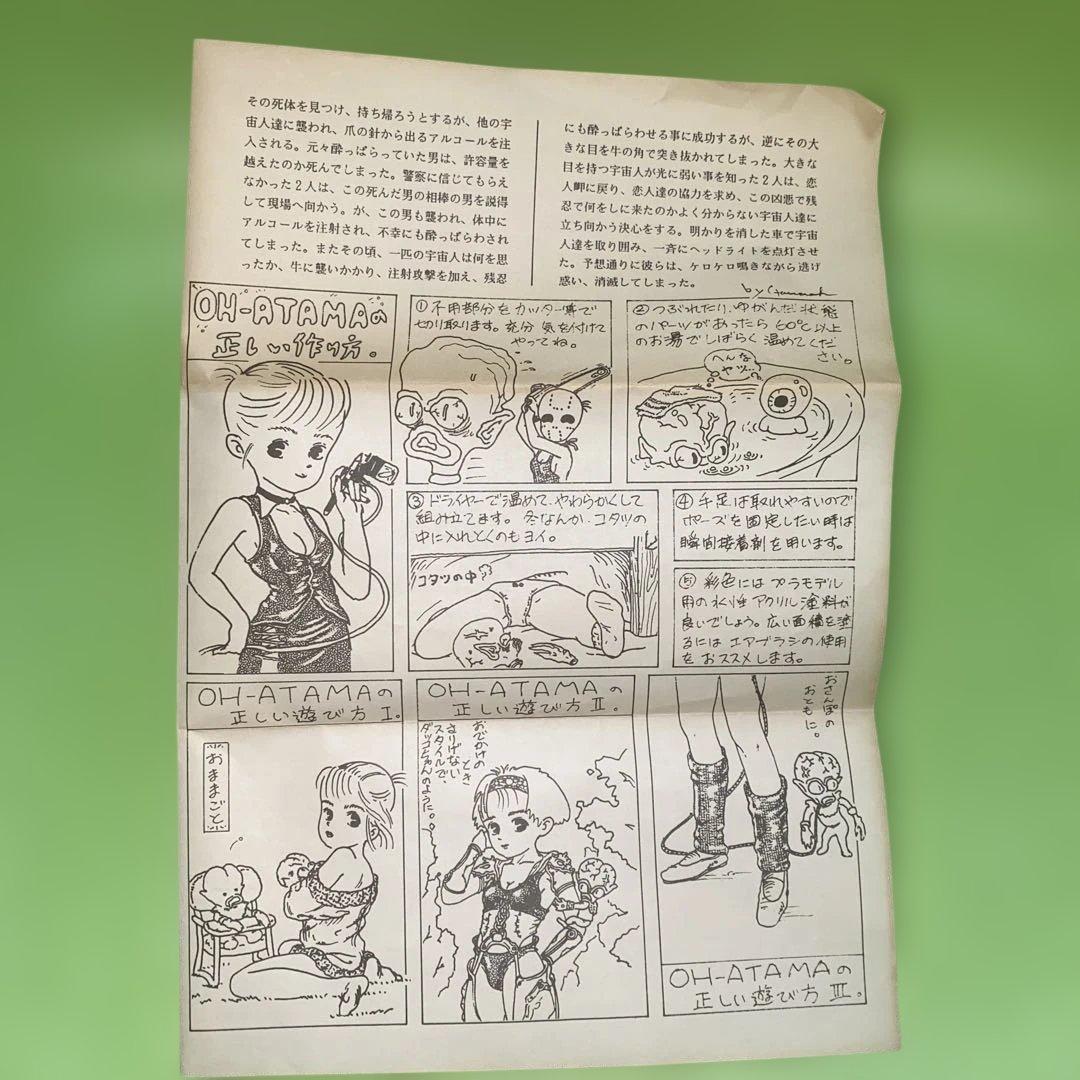 その死体を見つけ、持ち帰ろうとするが、他の宇
宙人達に襲われ、爪の針から出るアルコールを注
入される。元々酔っぱらっていた男は、許容量を
越えたのか死んでしまった。警察に信じてもらえ
なかった2人は、この死んだ男の相棒の男を説得
して現場へ向かう。が、この男も襲われ、体中に
アルコールを注射され、不幸にも酔っぱらわされ
てしまった。またその頃、一匹の宇宙人は何を思
ったか、牛に襲いかかり、注射攻撃を加え、残忍
にも酔っぱらわせる事に成功するが、逆にその大
きな目を牛の角で突き抜かれてしまった。大きな
目を持つ宇宙人が光に弱い事を知った2人は、恋
人岬に戻り、恋人達の協力を求め、この凶悪で残
忍で何をしに来たのかよく分からない宇宙人達に
立ち向かう決心をする。明かりを消した車で宇宙
人達を取り囲み、一斉にヘッドライトを点灯させ
た。予想通りに彼らは、ケロケロ鳴きながら逃げ
惑い、消滅してしまった。
by
OH-ATAMAの
正しい作り方。
① 不用部分をカッター等で
切り取ります。充分 気を付けて
やってね。
② つぶれたり、ゆがんだ状態
のパーツがあったら 60℃以上
のお湯でしばらく 温めてくだ
さい。
へんな
ヤツ…
③ ドライヤーで温めて、やわらかくして
組み立てます。冬なんか、コタツの
中に入れとくのもヨイ。
コタツの中
④ 手足は取れやすいので
ポーズを固定したい時は
瞬間接着剤を用います。
⑤ 彩色には プラモデル
用の水性 アクリル塗料が
良いでしょう。広い面積を塗
るには エアブラシの使用
を おススメします。
OH-ATAMAの
正しい遊び方 I。
おままごと
OH-ATAMAの
正しい遊び方 II。
おでかけの
とき
さりげない
スタイルで、
ダッコちゃんのように。
おさんぽの
おともに。
OH-ATAMAの
正しい遊び方 III。